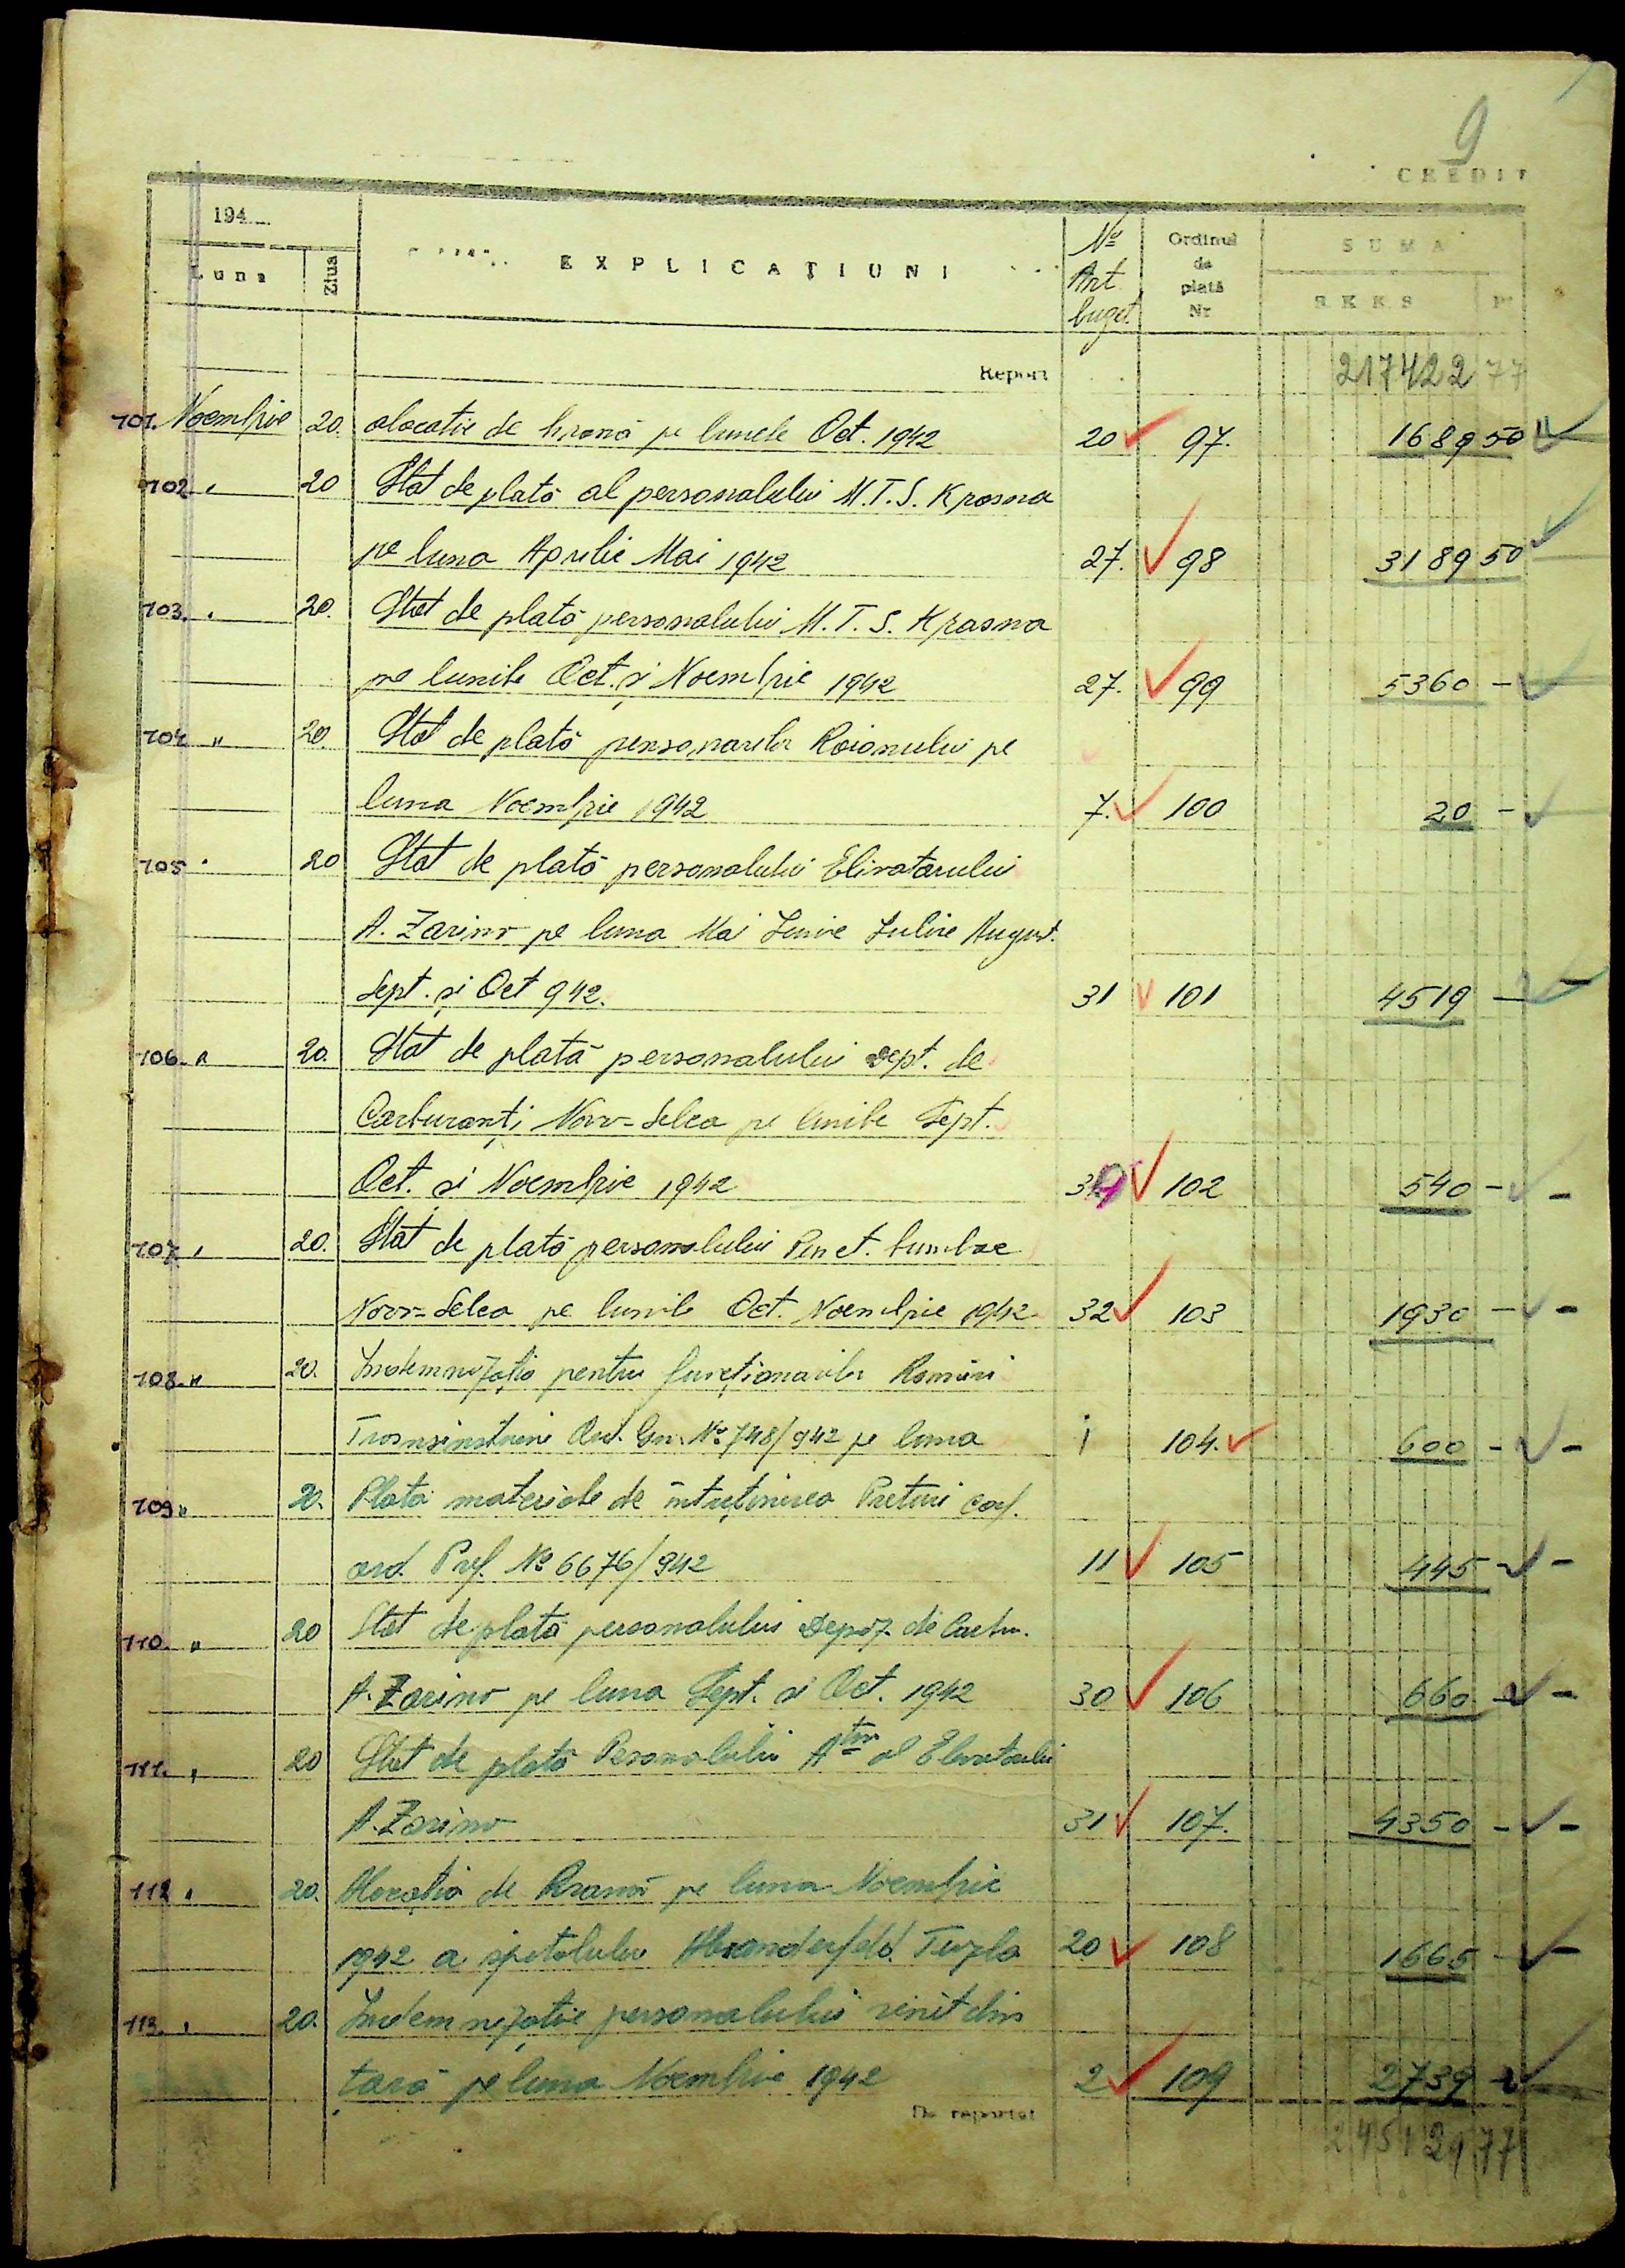 9
CREDIT
194
Luna Ziua EXPLICAŢIUNI No Art. buget. Ordinul de plată Nr SUMA
RKKS Pf
Report 217422 77
101. Noembrie 20. alocatie de hrană pe lunele Oct. 1942 20 97. 1689 50
102 " 20 Stat de plată al personalului M.T.S. Krasna
pe luna Aprilie Mai 1942 27. 98 3189 50
103. " 20. Stat de plată personalului M.T.S. Krasna
pe lunile Oct. și Noembrie 1942 27. 99 5360 -
104 " 20. Stat de plată pensionarilor Raionului pe
luna Noembrie 1942 7. 100 20 -
105 " 20 Stat de plată personalului Elivatorului
A. Zarino pe luna Mai Iunie Iulie August.
Sept. și Oct 942. 31 101 4519 -
106 " 20. Stat de plată personalului Dept. de
Carburanți Novo-Selca pe lunile Sept.
Oct. și Noembrie 1942 102 540 -
107 " 20. Stat de plată personalului Punct. bumbac
Novo-Selca pe lunile Oct. Noembrie 1942 32 103 1930 -
108 " 20. Indemnizația pentru funcționarilor Români
Transnistrieni Ord. Guv. No 748/942 pe luna 1 104. 600 -
109 " 20. Plata materiale de întreținerea Preturii conf.
ord. Pref. No 6676/942 11 105 445 -
110. " 20 Stat de plată personalului Depoz. de Carbu.
A. Zarino pe luna Sept. și Oct. 1942 30 106 660 -
111. " 20 Stat de plată Personalului Atiw al Elevatorului
A. Zarino 31 107. 4350 -
112 " 20. Alocația de Hrană pe luna Noembrie
1942 a spitalului Alexanderfeld Tuzla 20 108 1665 -
113. " 20. Indemnizatie personalului venit din
tară pe luna Noembrie 1942 2 109 2739 -
De reportat 245129 77